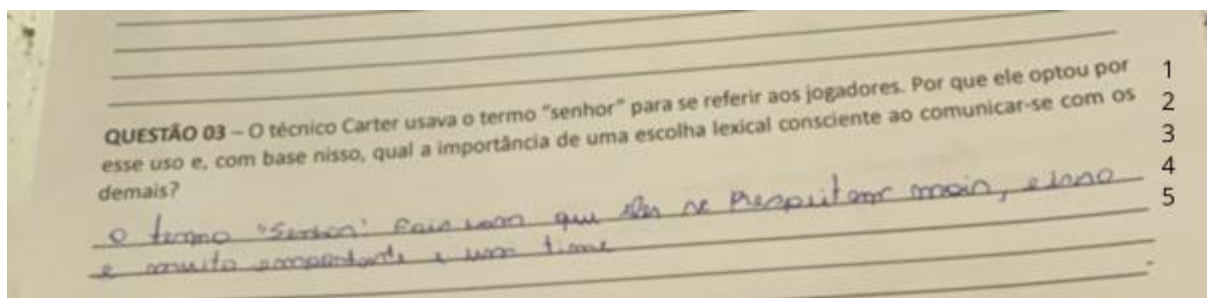 QUESTÃO 03 – O técnico Carter usava o termo "senhor" para se referir aos jogadores. Por que ele optou por 1
esse uso e, com base nisso, qual a importância de uma escolha lexical consciente ao comunicar-se com os 2
demais? 3
4
O termo "Senhor" com que eles se Respeitem mais, e isso 5
e muito importante e um time